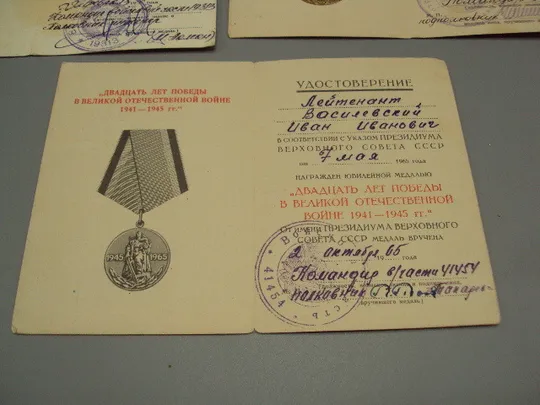 „ДВАДЦАТЬ ЛЕТ ПОБЕДЫ
В ВЕЛИКОЙ ОТЕЧЕСТВЕННОЙ ВОЙНЕ
1941—1945 гг."
1945 1965
УДОСТОВЕРЕНИЕ
Лейтенант
Василевский
Иван Иванович
В СООТВЕТСТВИИ С УКАЗОМ ПРЕЗИДИУМА
ВЕРХОВНОГО СОВЕТА СССР
от 7 мая 1965 года
НАГРАЖДЕН ЮБИЛЕЙНОЙ МЕДАЛЬЮ
„ДВАДЦАТЬ ЛЕТ ПОБЕДЫ
В ВЕЛИКОЙ ОТЕЧЕСТВЕННОЙ
ВОЙНЕ 1941—1945 гг."
ОТ ИМЕНИ ПРЕЗИДИУМА ВЕРХОВНОГО
СОВЕТА СССР МЕДАЛЬ ВРУЧЕНА
2 октября 1965 года
Командир в/части 41454
полковник
(вручившего медаль)
41454